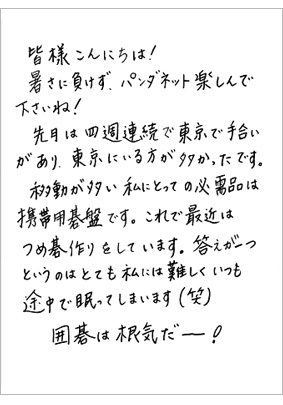 皆様こんにちは!
暑さに負けず、パンダネット楽しんで
下さいね!
先月は四週連続で東京で手合い
があり、東京にいる方が多かったです。
移動が多い私にとっての必需品は
携帯用碁盤です。これで最近は
つめ碁作りをしています。答えが一つ
というのはとても私には難しくいつも
途中で眠ってしまいます(笑)
囲碁は根気だー!